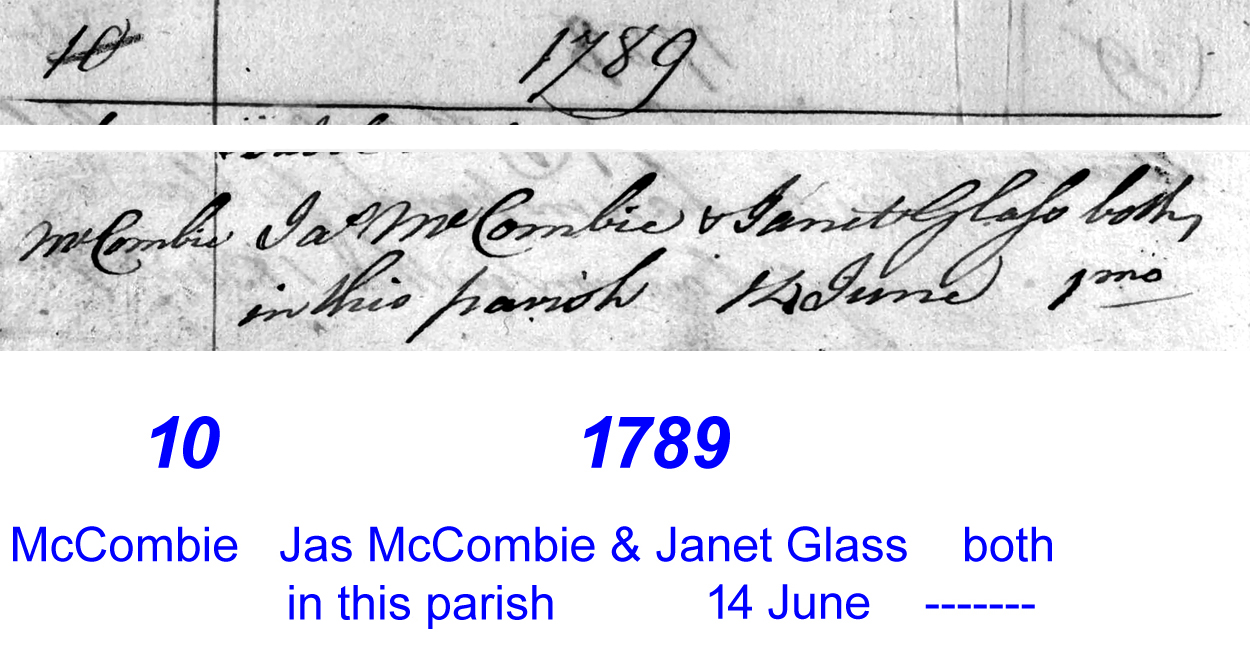 10 1789
McCombie Jas McCombie & Janet Glass both
in this parish 14 June 1mo
10 1789
McCombie Jas McCombie & Janet Glass both
in this parish 14 June -------